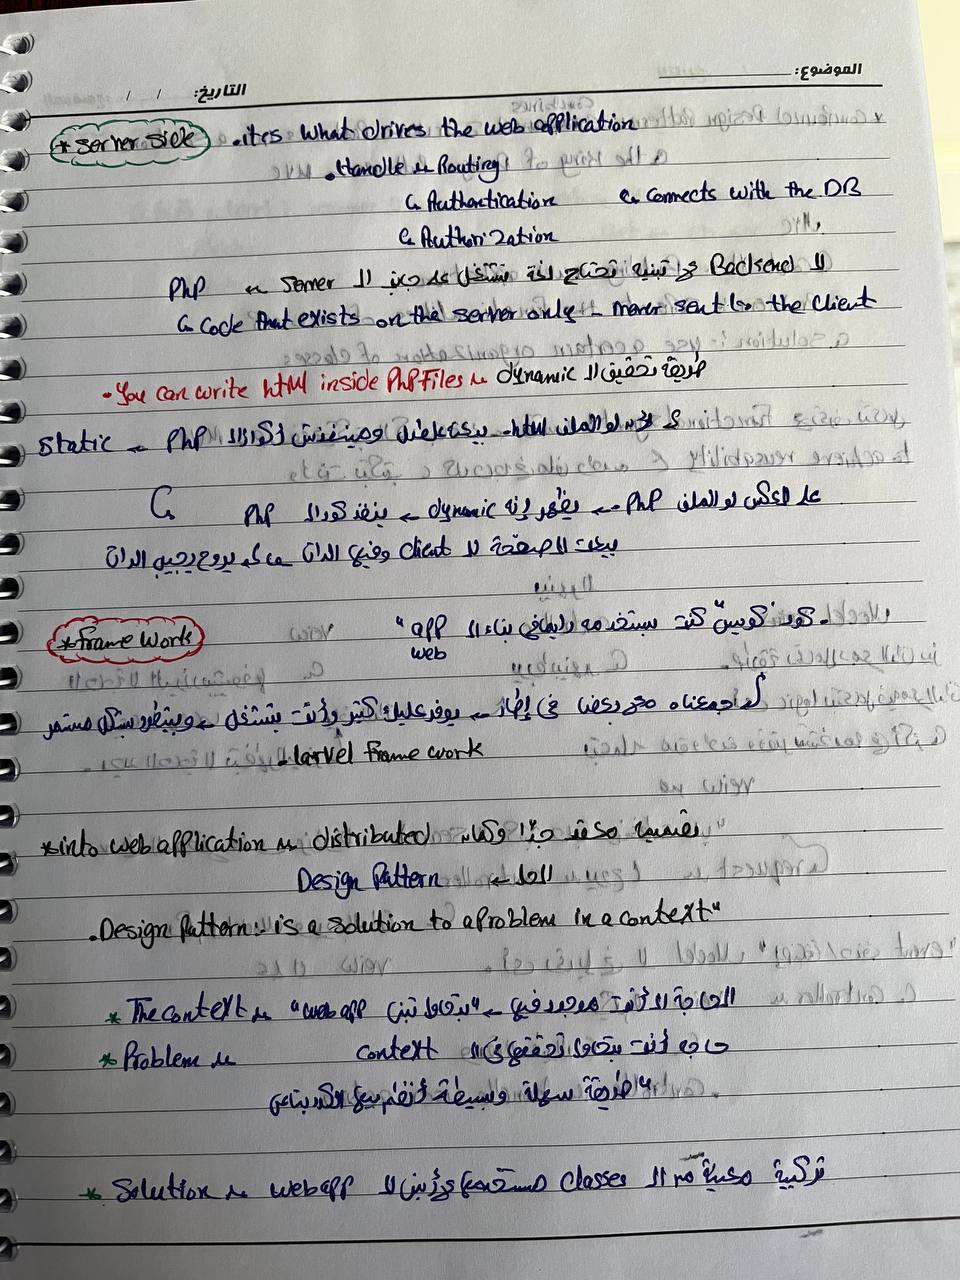 الموضوع:
التاريخ: / /
* server side . its what drives the web application
. Handle Routing
Authentication
Connects with the DB
Authorization
الـ Backend عشان تبنيه تحتاج لغة بتشتغل على جنب الـ Server PhP
Code that exists on the server only - never sent to the client
. You can write html inside PhP Files طريقة تحقيق الـ dynamic
لو الملف html - وميننفذش أكواد الـ PhP Static
على العكس لو الملف PhP يظهر إنه dynamic ينفذ كود الـ PhP
يبعت الصفحة للـ client وفيها الداتا يروح يجيب الداتا
* Frame Work . كود كويس كنت بستخدمه دايما في بناء الـ "app
web
لما جمعناه مع بعضه في إطار يوفر عليك كتير وأنت بتشتغل وبيتطور بشكل مستمر
larvel frame work
* into web application distributed تقسيمه معقد جدًا
الحل Design Pattern
. Design Pattern: is a solution to a Problem in a context"
* The context الحاجة الـ أنت موجود فيها "بتحاول تبني web app"
* Problem حاجه أنت بتحاول تحققها في الـ context
"طريقة سهلة وبسيطة أنظم بيها الكود بتاعي
* Solution تركيبة معينة من الـ classes هستخدمها عشان أبني الـ webapp